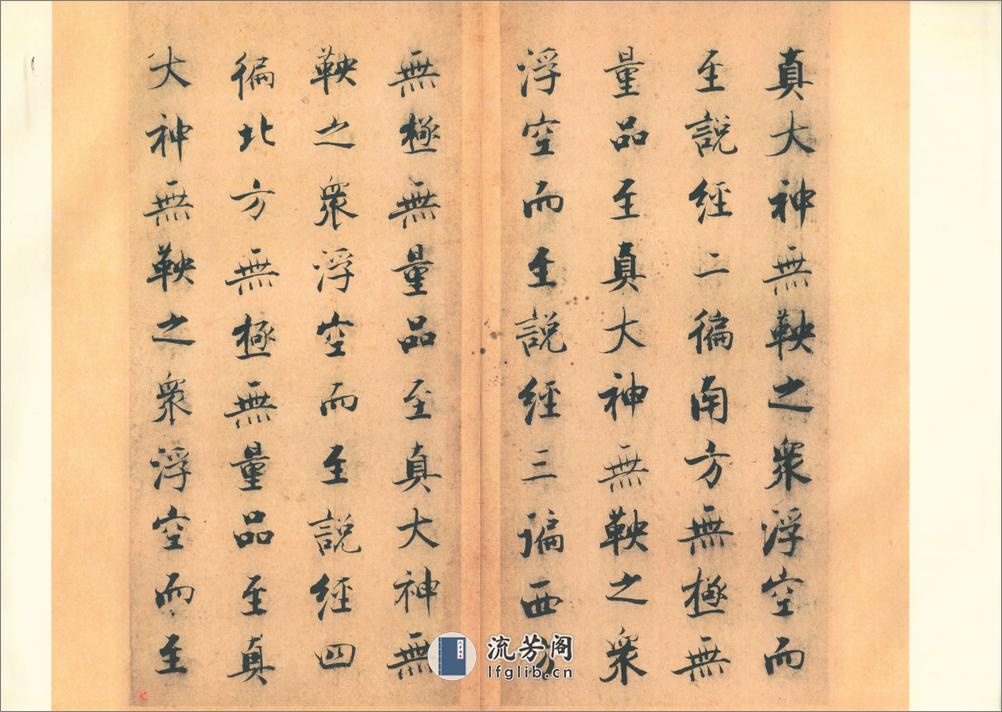 真大神無鞅之衆浮空而
至說經二徧南方無極無
量品至真大神無鞅之衆
浮空而至說經三諞西方
無極無量品至真大神無
鞅之衆浮空而至說經四
徧北方無極無量品至真
大神無鞅之衆浮空而至
流芳阁
lfglib.cn